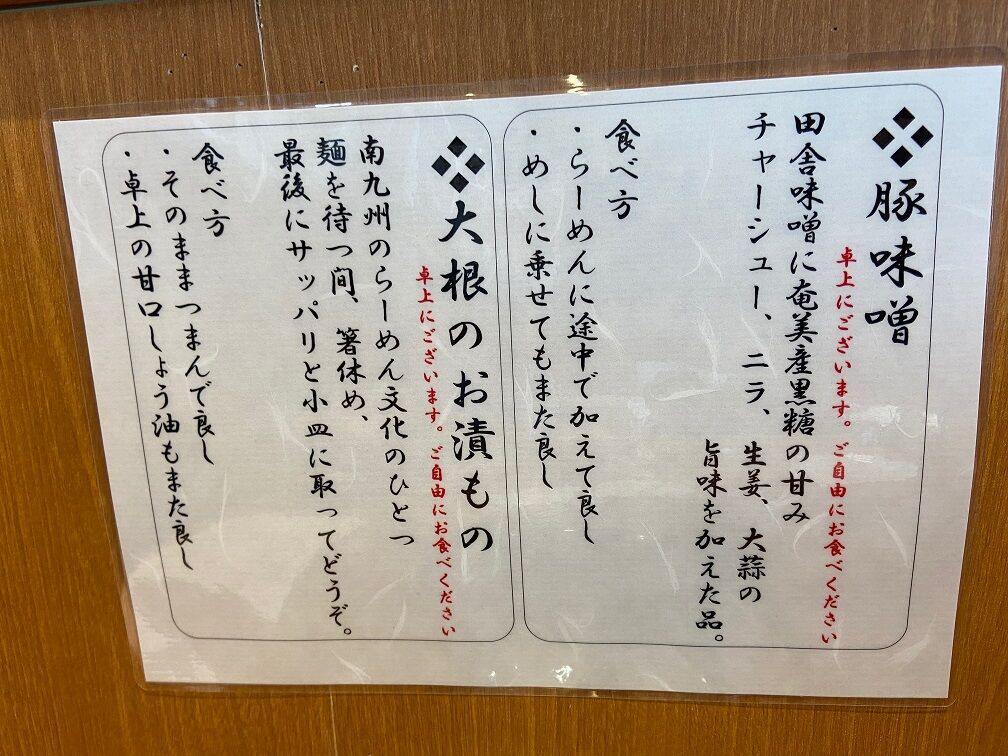 豚味噌
卓上にございます。ご自由にお食べください
田舎味噌に奄美産黒糖の甘み
チャーシュー、ニラ、生姜、大蒜の
旨味を加えた品。
食べ方
・らーめんに途中で加えて良し
・めしに乗せてもまた良し
大根のお漬もの
卓上にございます。ご自由にお食べください
南九州のらーめん文化のひとつ
麺を待つ間、箸休め、
最後にサッパリと小皿に取ってどうぞ。
食べ方
・そのままつまんで良し
・卓上の甘口しょう油もまた良し